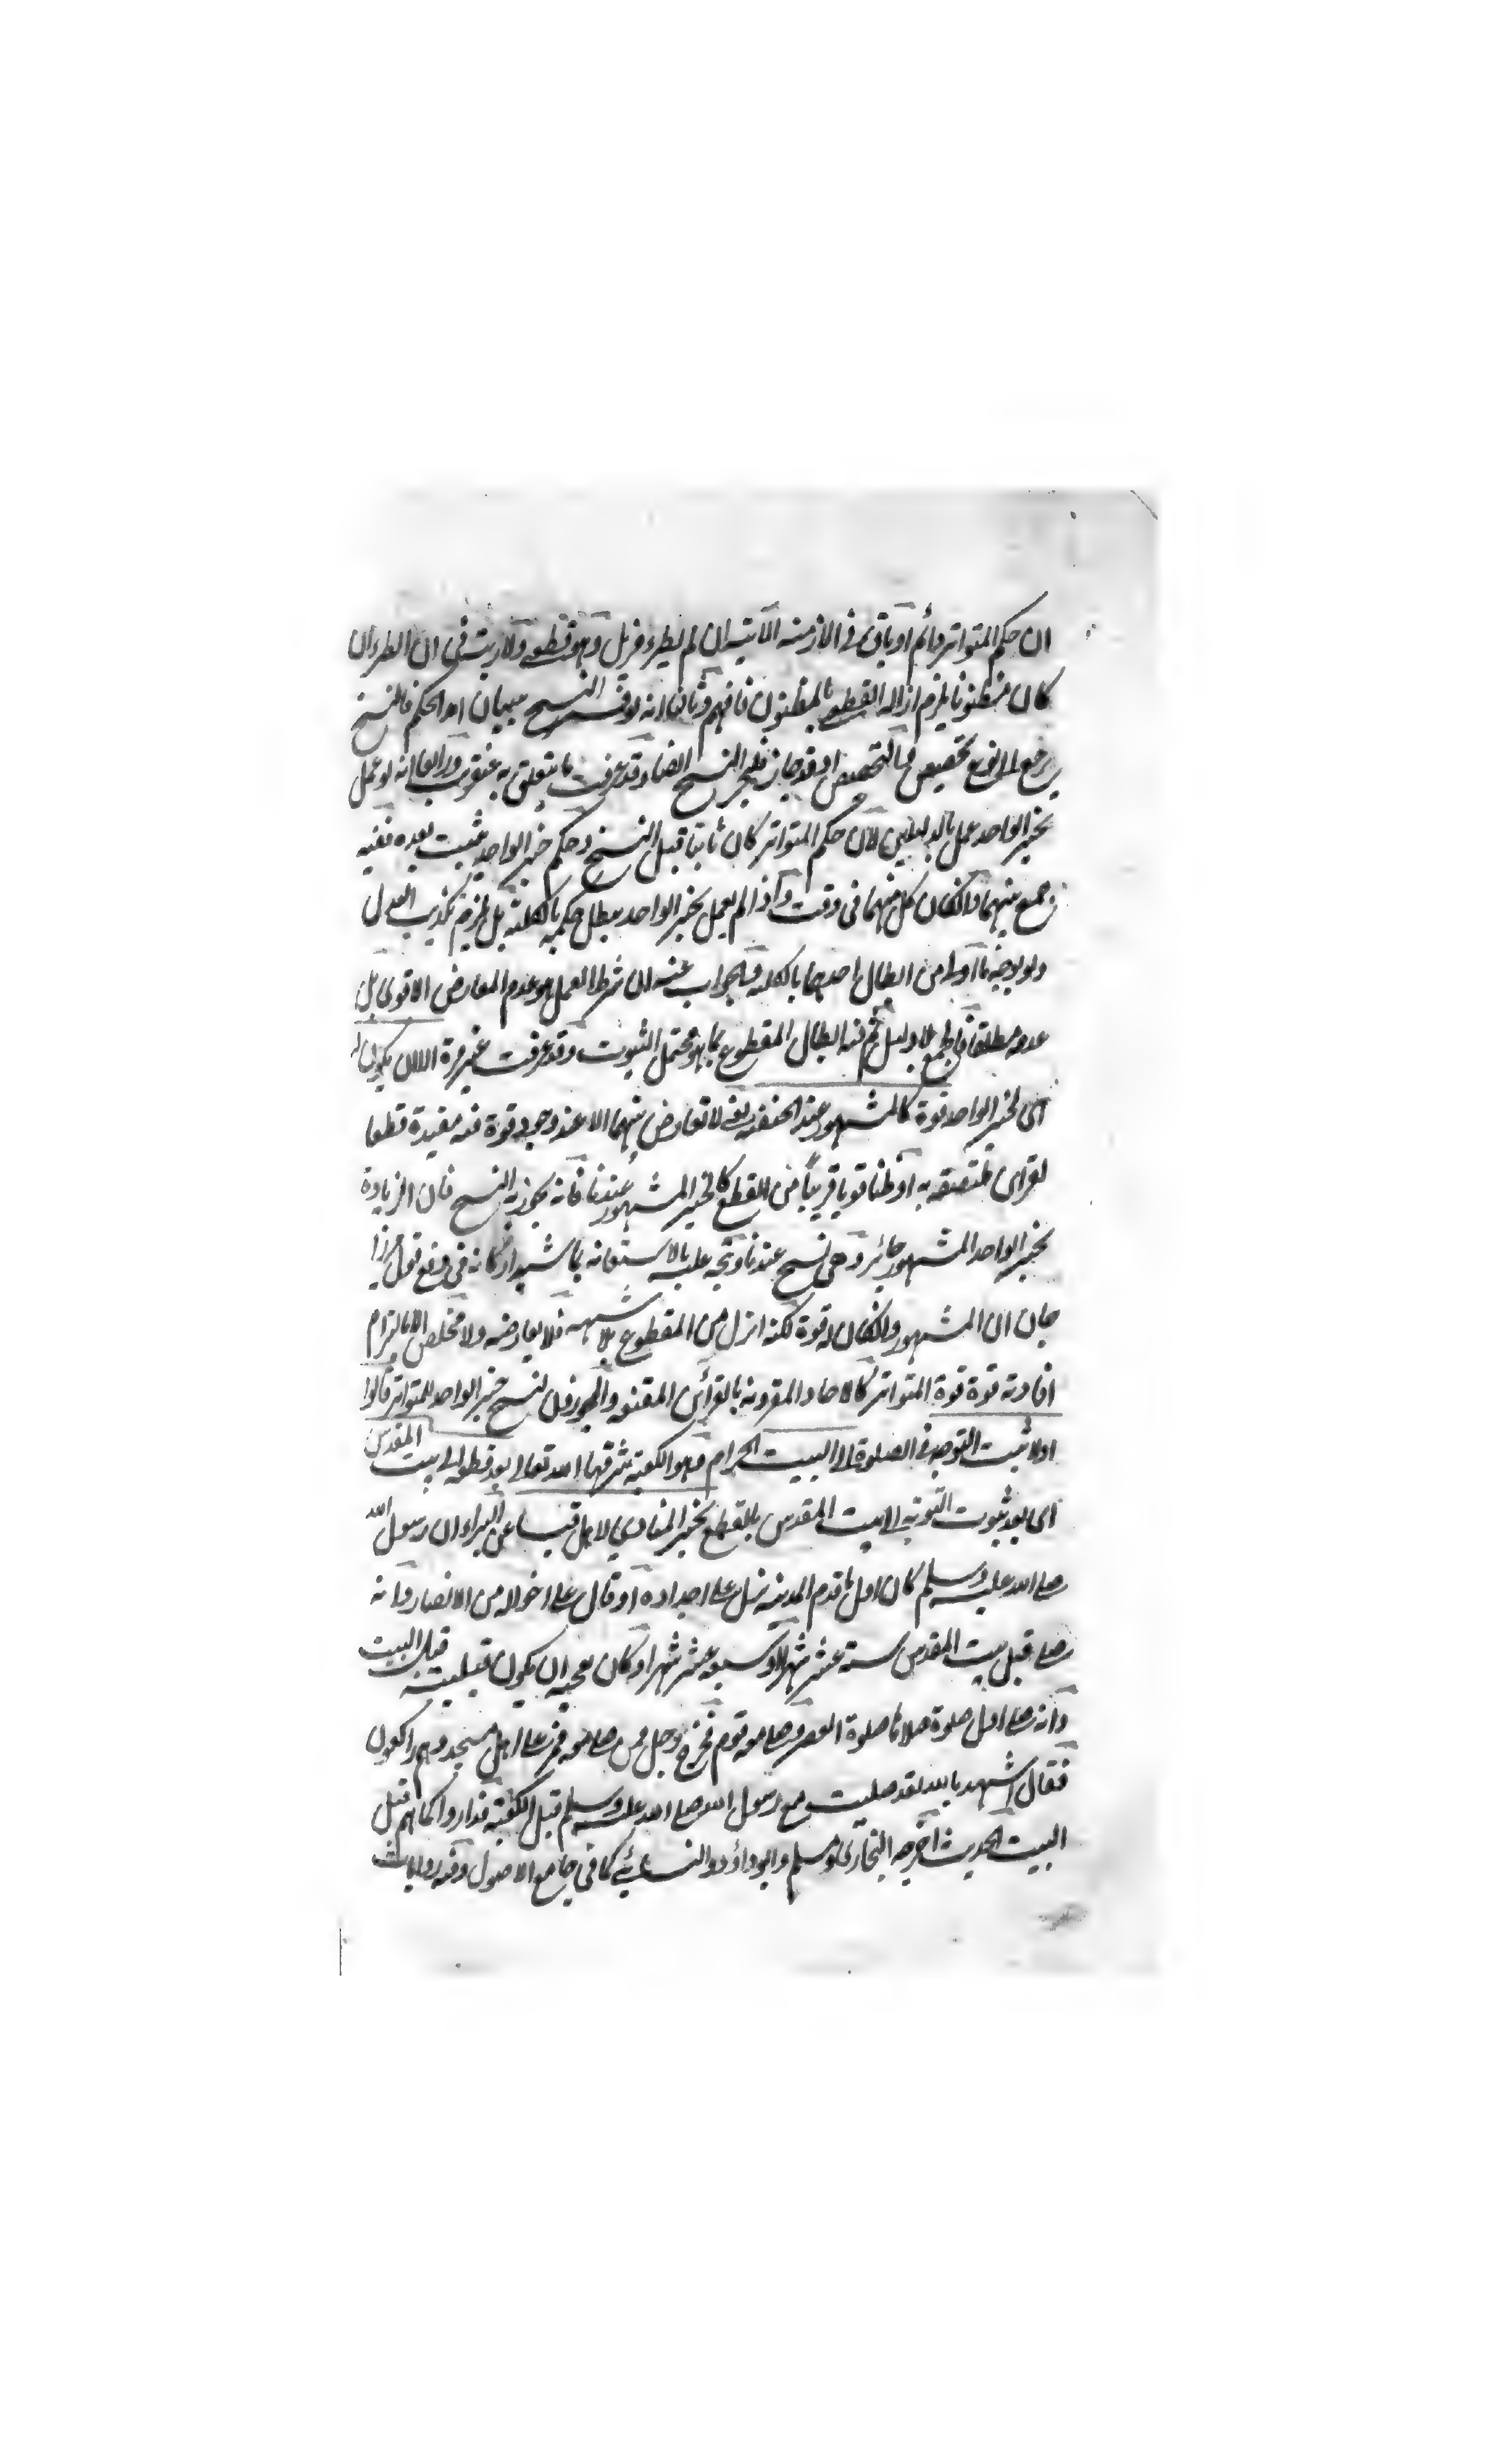 ان حكم المتواتر دائم او باق في الازمنة الآتية ان لم يطرء مزيل وهو قطعي ولا ريب في ان الطران
كان مظنونا يلزم ازالة القطعي بالمظنون فافهم وثالثا انه لوقت النسخ بيان امد الحكم فالنسخ
يرجع الى نوع تخصيص التخصيص اذ قد جاز فليجز النسخ ايضا وقد عرفت ما يتعلق به عنقريب ورابعا انه لو عمل
بخبر الواحد عمل بالدليلين لان حكم المتواتر كان ثابتا قبل النسخ وحكم خبر الواحد يثبت بعده ففيه
جمع بينهما وانكان كل منهما في وقت واذا لم يعمل بخبر الواحد يبطل حكمه بالكلية بل يلزم تكذيب العدل
ولو بوجه ما اولى من ابطال احدهما بالكلية والجواب عنه ان شرط العمل هو عدم المعارض الاقوى بل
عدمه مطلقا فالجمع بلا دليل ثم فيه ابطال المقطوع بما هو محتمل الثبوت وقد عرفت غير مرة الا ان يكون له
اي لخبر الواحد قوة كالمشهور عند الحنفية يعني لا تعارض بينهما الا عند وجود قوة فيه مفيدة قطعا
لقرائن ملتصقة به او ظنا قويا قريبا من القطع كالخبر المشهور عندنا فانه يجوز به النسخ فان الزيادة
بخبر الواحد المشهور جائز وهي نسخ عندنا ويتجه عليه بالاستعانة بما شيد اركانه في دفع قول مرزا
جان ان المشهور وانكان له قوة لكنه انزل من المقطوع بلا شبهة فلا يعارضه ولا مخلص الا بالتزام
افادته قوة قوة المتواتر كالاحاد المقرونة بالقرائن المقنعة والمجوزون لنسخ خبر الواحد للمتواتر قالوا
اولا ثبت التوجه في الصلوة الى البيت الحرام وهو الكعبة شرفها الله تعالى بعد قطعه الى بيت المقدس
اي بعد ثبوت التوجه الى بيت المقدس بالقطع بخبر المنادي لاهل قبا عن البراء ان رسول الله
صلى الله عليه وسلم كان اول ما قدم المدينة نزل على اجداده او قال على اخواله من الانصار وانه
صلى قبل بيت المقدس ستة عشر شهرا او سبعة عشر شهرا وكان يعجبه ان يكون قبلته قبل البيت
وانه صلى اول صلوة صلاها صلوة العصر وصلى معه قوم فخرج رجل ممن صلى معه فمر على اهل مسجد وهم راكعون
فقال اشهد بالله لقد صليت مع رسول الله صلى الله عليه وسلم قبل الكعبة فداروا كما هم قبل
البيت الحديث اخرجه البخاري ومسلم وابو داؤد والنسائي كما في جامع الاصول وفيه روايات